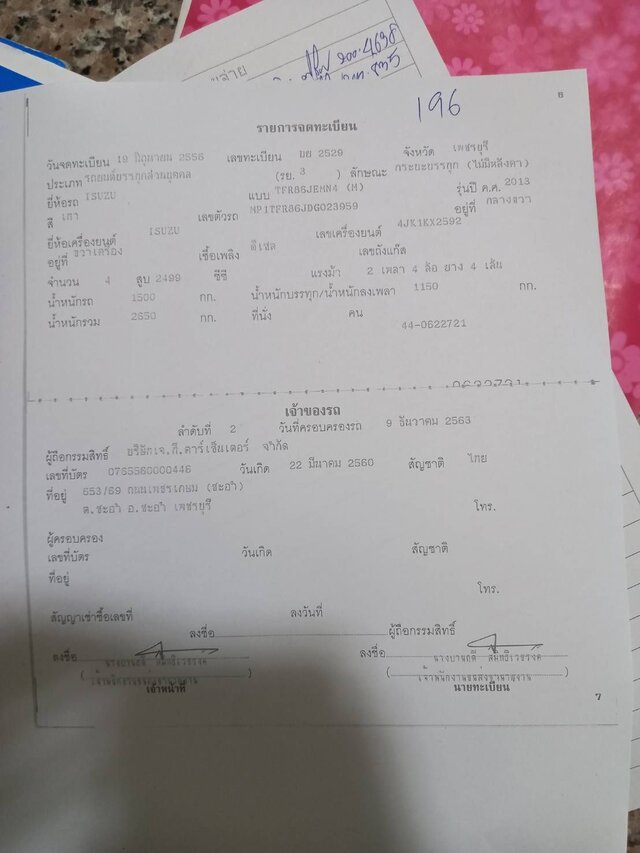 196
8
รายการจดทะเบียน
วันจดทะเบียน 19 มิถุนายน 2556 เลขทะเบียน บย 2529 จังหวัด เพชรบุรี
ประเภท รถยนต์บรรทุกส่วนบุคคล (รย. 3 ) ลักษณะ กระบะบรรทุก (ไม่มีหลังคา)
ยี่ห้อรถ ISUZU แบบ TFR86JEMN4 (M) รุ่นปี ค.ศ. 2013
สี เทา เลขตัวรถ MP1TFR86JDG023959 อยู่ที่ กลางขวา
ยี่ห้อเครื่องยนต์ ISUZU เลขเครื่องยนต์ 4JK1KX2592
อยู่ที่ ขวาเครื่อง เชื้อเพลิง ดีเซล เลขถังแก๊ส
จำนวน 4 สูบ 2499 ซีซี แรงม้า 2 เพลา 4 ล้อ ยาง 4 เส้น
น้ำหนักรถ 1500 กก. น้ำหนักบรรทุก/น้ำหนักลงเพลา 1150 กก.
น้ำหนักรวม 2650 กก. ที่นั่ง คน
44-0622721
เจ้าของรถ
ลำดับที่ 2 วันที่ครอบครองรถ 9 ธันวาคม 2563
ผู้ถือกรรมสิทธิ์ บริษัทเจ.ที.คาร์เซ็นเตอร์ จำกัด
เลขที่บัตร 0765560000446 วันเกิด 22 มีนาคม 2560 สัญชาติ ไทย
ที่อยู่ 653/69 ถนนเพชรเกษม (ชะอำ)
ต.ชะอำ อ.ชะอำ เพชรบุรี โทร.
ผู้ครอบครอง
เลขที่บัตร วันเกิด สัญชาติ
ที่อยู่
โทร.
สัญญาเช่าซื้อเลขที่ ลงวันที่
ลงชื่อ ผู้ถือกรรมสิทธิ์
ลงชื่อ ลงชื่อ
เจ้าหน้าที่ นายทะเบียน
7